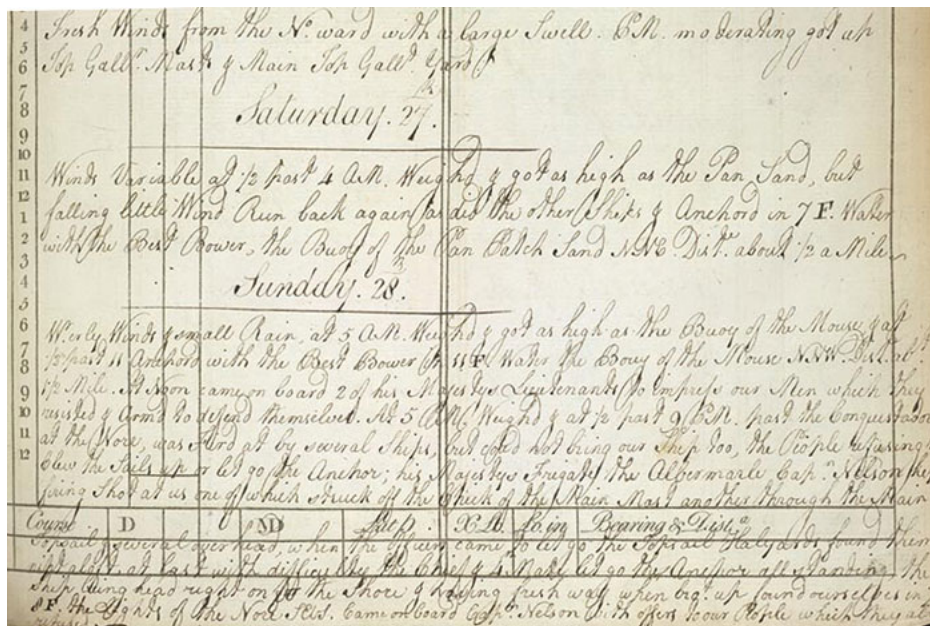 4 Fresh Winds from the No. ward with a large Swell. P.M. moderating got up
5
6 Top Gallt. Mast & Main Top Gallt. Yard
7
8 Saturday. 27.
9
10
11 Winds Variable at 1/2 past 4 A.M. Weighd & got as high as the Pan Sand, but
12
1 falling little Wind Run back again as did the other Ships & Anchord in 7 F. Water
2 with the Best Bower, the Buoy of the Pan Patch Sand NNE. Diste. about 1/2 a Mile
3
4 Sunday. 28.
5
6 Wterly Winds & small Rain, at 5 A.M. Weighd & got as high as the Buoy of the Mouse, & at
7 1/2 past 11 Anchord with the Best Bower in 11 F. Water the Bouy of the Mouse NNW. Distt. abt.
8
9 1 1/2 Mile. At Noon came on board 2 of his Majestys Lieutenants to impress our Men which they
10 resisted & Armd to defend themselves. At 5 P.M. Weighd & at 1/2 past 9 P.M. past the Conquestador
11 at the Nore, was fird at by several Ships, but could not bring our Ship too, the People refusing
12 clew the Sails up or let go the Anchor; his Majestys Frigate the Albermarle Capn. Nelson kept
firing Shot at us one of which struck off the Cheek of the Main Mast another through the Main
Course D M Latd. X Lo. Lo in Bearing & Distce.
Topsail & several overhead, when the Officers came to let go the Topsail Halyards found them
at last with difficulty the Chief & 4 Mate let go the Anchor all standing, the
Ship being head right on for the Shore & having fresh way when brot. up found ourselves in
8 F. the Lights of the Nore Came on board Capn. Nelson with offers to our People which they at